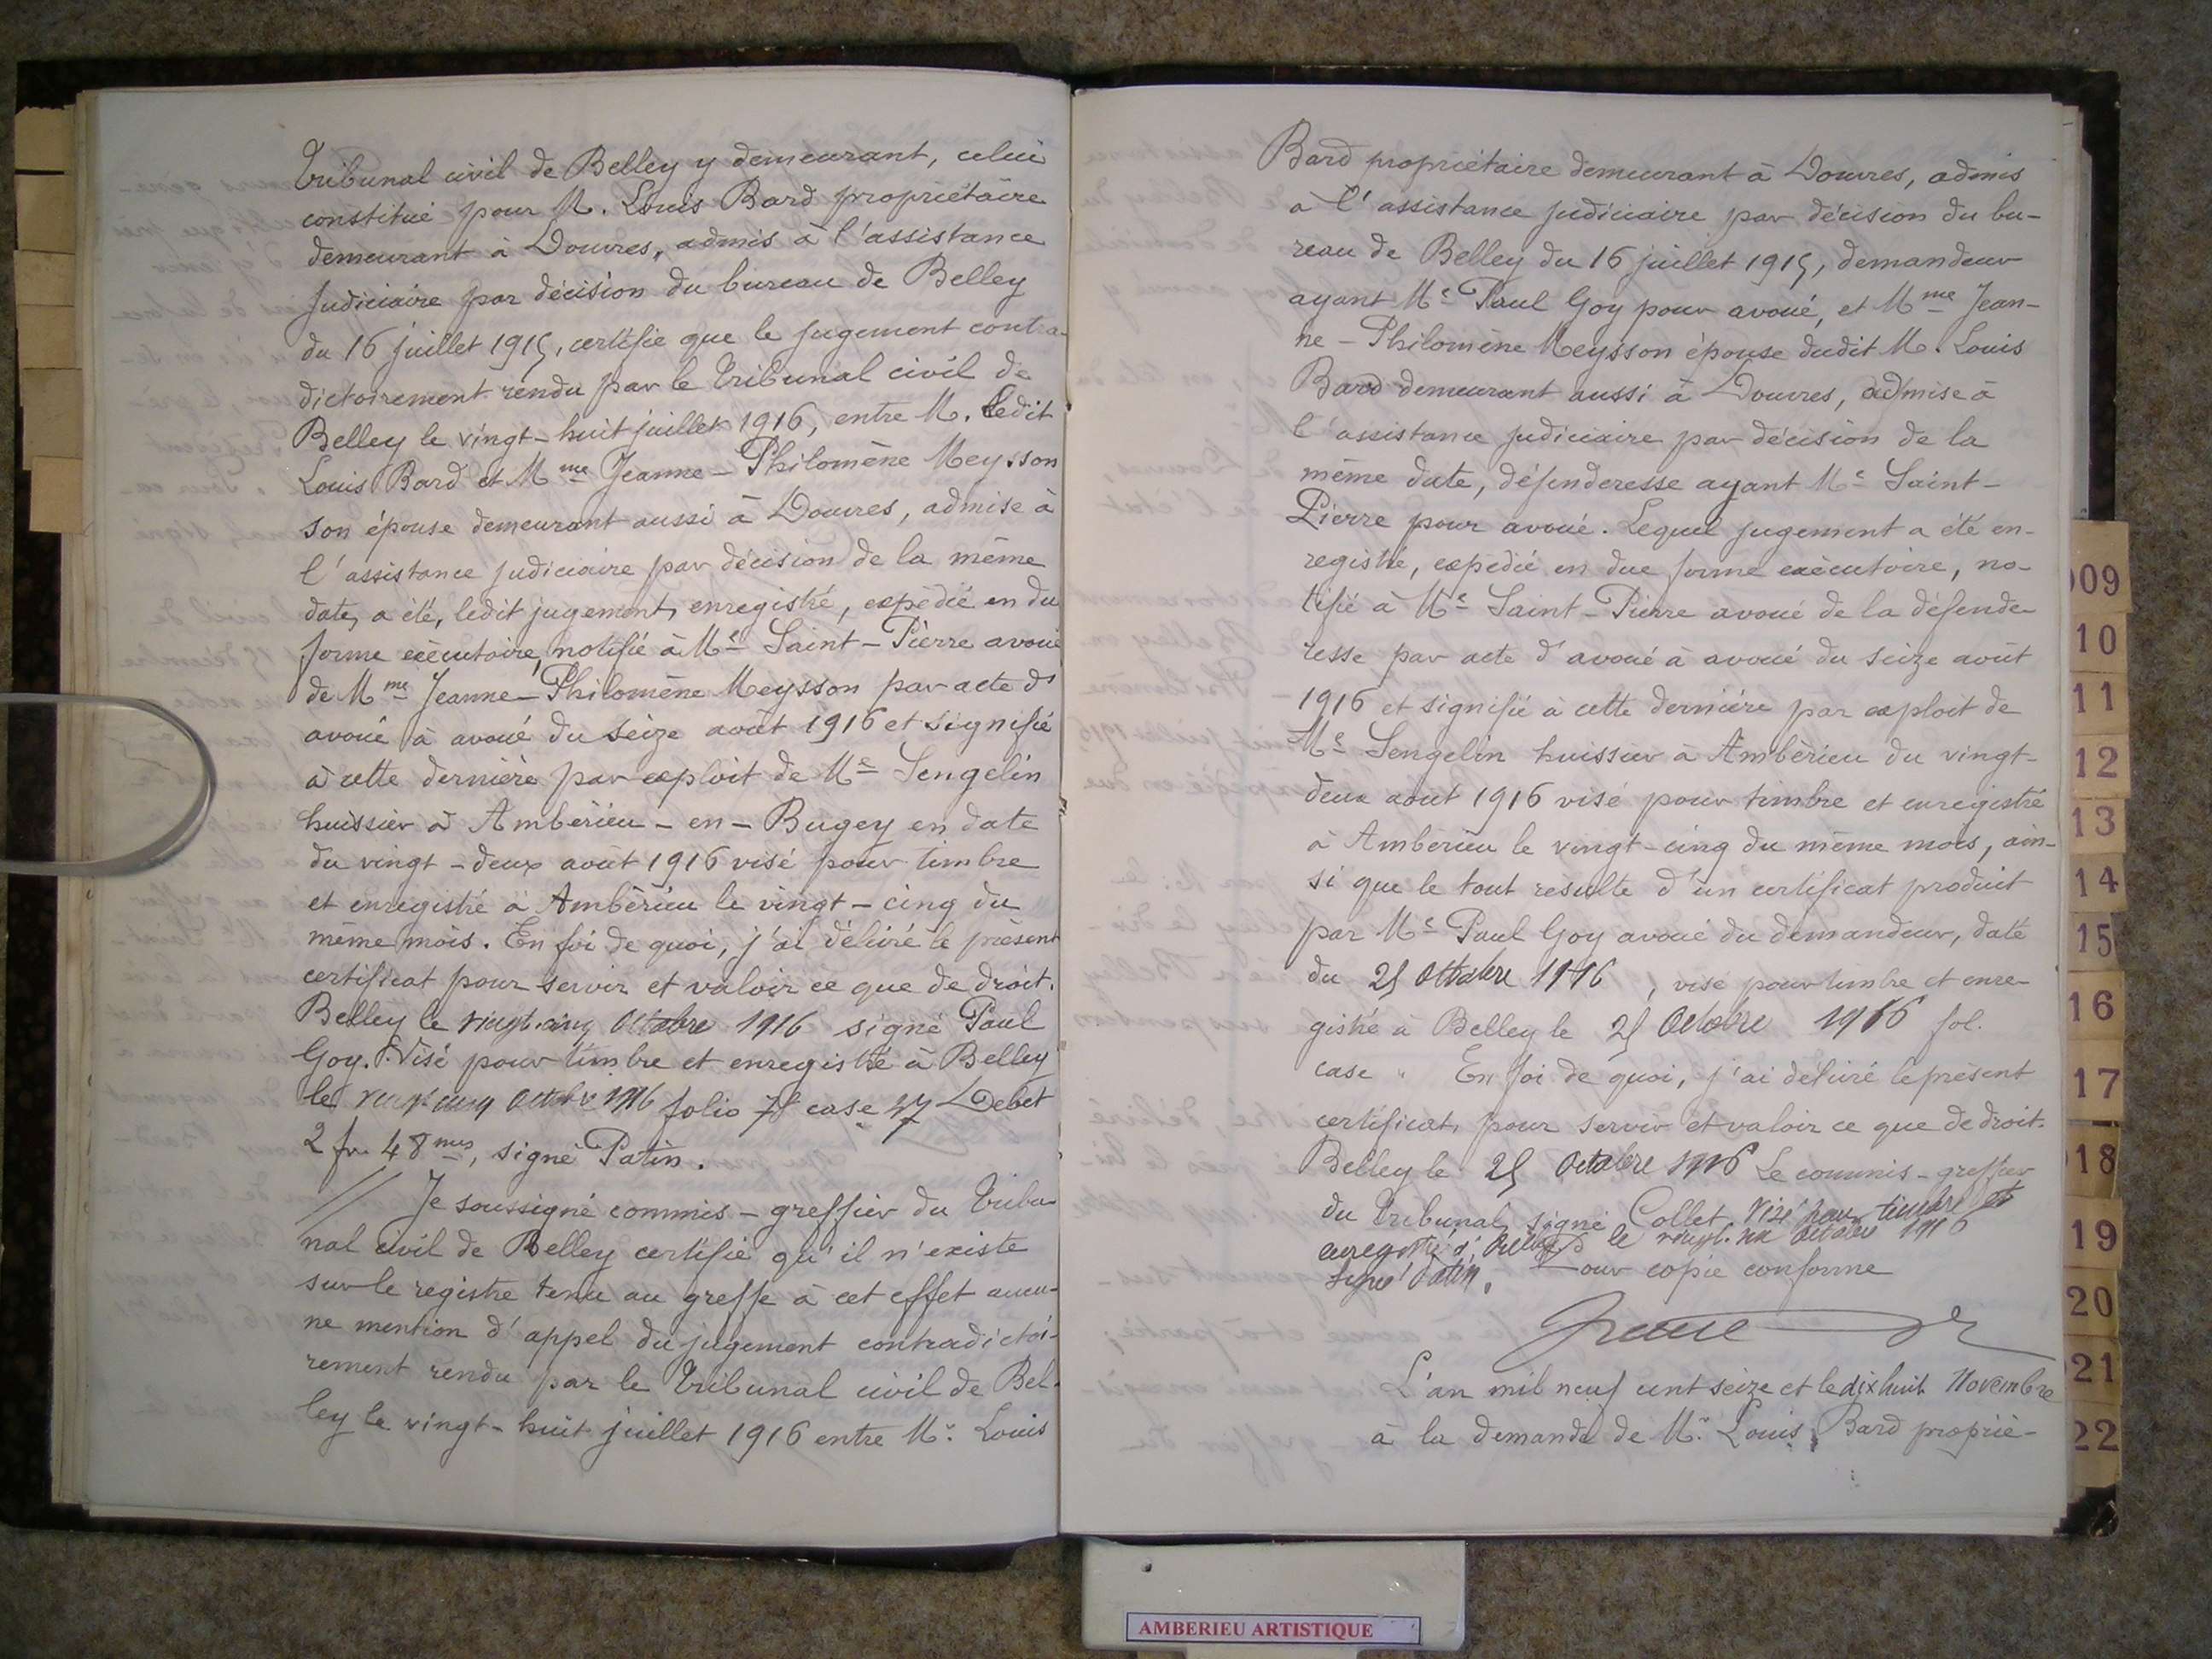 Tribunal civil de Belley y demeurant, celui
constitué pour M. Louis Bard propriétaire
demeurant à Douvres, admis à l'assistance
judiciaire par décision du bureau de Belley
du 16 juillet 1915, certifie que le jugement contra-
dictoirement rendu par le Tribunal civil de
Belley le vingt-huit juillet 1916, entre M. Ledit
Louis Bard et Mme Jeanne-Philomène Meysson
son épouse demeurant aussi à Douvres, admise à
l'assistance judiciaire par décision de la même
date, a été, ledit jugement, enregistré, expédié en du
forme exécutoire, notifié à Me Saint-Pierre avoué
de Mme Jeanne-Philomène Meysson par acte d'
avoué à avoué du seize août 1916 et signifié
à cette dernière par exploit de Me Sengelin
huissier à Ambérieu-en-Bugey en date
du vingt-deux août 1916 visé pour timbre
et enregistré à Ambérieu le vingt-cinq du
même mois. En foi de quoi, j'ai délivré le présent
certificat pour servir et valoir ce que de droit.
Belley le vingt-cinq Octobre 1916 signé Paul
Goy. Visé pour timbre et enregistré à Belley
le vingt cinq Octobre 1916 folio case Debet
2 fr. 48 mes, signé Patin.
// Je soussigné commis-greffier du Tribu-
nal civil de Belley certifie qu'il n'existe
sur le registre tenu au greffe à cet effet aucu-
ne mention d'appel du jugement contradictoi-
rement rendu par le Tribunal civil de Bel-
ley le vingt-huit juillet 1916 entre Mr. Louis
Bard propriétaire demeurant à Douvres, admis
à l'assistance judiciaire par décision du bu-
reau de Belley du 16 juillet 1915, demandeur
ayant Me Paul Goy pour avoué, et Mme Jean-
ne-Philomène Meysson épouse dudit M. Louis
Bard demeurant aussi à Douvres, admise à
l'assistance judiciaire par décision de la
même date, défenderesse ayant Me Saint-
Pierre pour avoué. Lequel jugement a été en-
registré, expédié en due forme exécutoire, no-
tifié à Me Saint-Pierre avoué de la défende-
resse par acte d'avoué à avoué du seize août
1916 et signifié à cette dernière par exploit de
Me Sengelin huissier à Ambérieu du vingt-
deux août 1916 visé pour timbre et enregistré
à Ambérieu le vingt-cinq du même mois, ain-
si que le tout résulte d'un certificat produit
par Me Paul Goy avoué du demandeur, daté
du 25 Octobre 1916, visé pour timbre et enre-
gistré à Belley le 25 Octobre 1916 fol.
case " En foi de quoi, j'ai délivré le présent
certificat, pour servir et valoir ce que de droit.
Belley le 25 Octobre 1916 Le commis-greffier
du Tribunal, signé Collet Visé pour timbre et
enregistré à Belley le Octobre 1916
signé Patin. Pour copie conforme
L'an mil neuf cent seize et le dix huit Novembre
à la demande de Mr. Louis Bard proprié-
09
10
11
12
13
14
15
16
17
18
19
20
21
22
AMBERIEU ARTISTIQUE